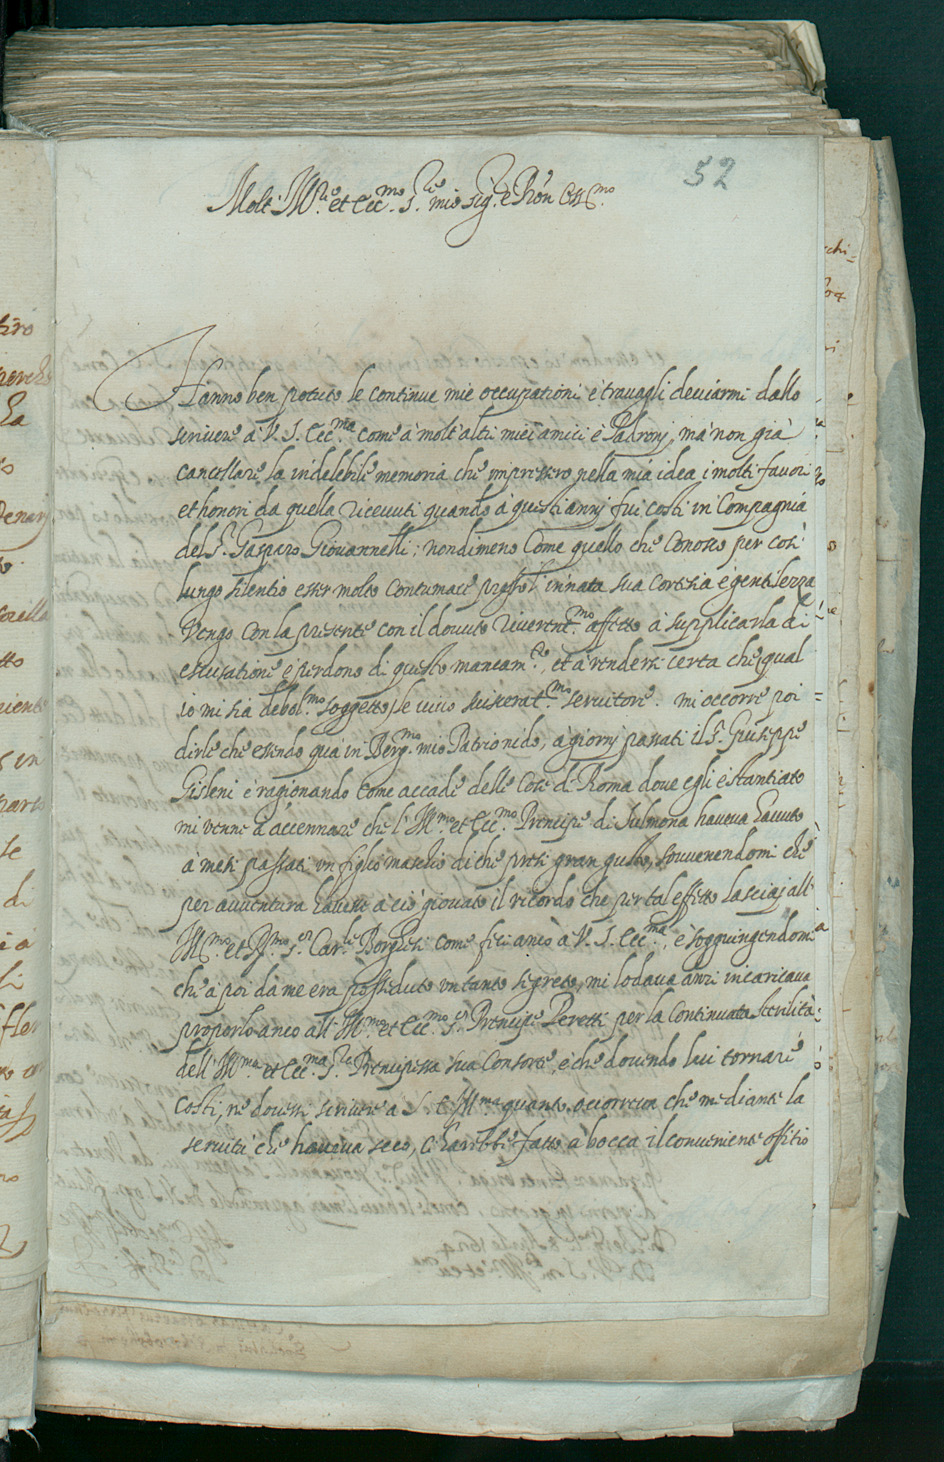 52
Molt' Ill.re et Ecc.mo S.re mio Sig.re e Pron Oss.mo
Hanno ben potuto le continue mie occupationi è travagli deviarmi dallo
scrivere à V. S. Ecc.ma come à molt'altri miei amici è Padronj, mà non già
cancellare la indelebile memoria che impressero nella mia idea i molti favori
et honori da quella ricevuti quando à questi annj fui costi in Compagnia
del S.r Gasparo Giovannelli; nondimeno Come quello che Conosco per cosi
lungo silentio esser molto contumace presso l'innata sua cortesia è gentilezza
Vengo con la presente con il dovuto riverent.mo affetto à supplicarla di
escusatione è perdono di questo mancam.to, et à rendersi certa che qual
io mi sia debol.mo soggetto, le vivo sviscerat.mo servitore. mi occorre poi
dirle che essendo qua in Berg.mo mio Patrio nido, à giornj passati il S.r Giuseppe
Gisleni è ragionando come accade delle Cose di Roma dove egli è stantiato
mi venne à accennare che l'Ill.mo et Ecc.mo Prencipe di Sulmona haveva havuto
à mesi passati un figlio maschio di che presi gran gusto, souvenendomi che
per avventura havesse à ciò giovato il ricordo che per tal effetto lasciaj all'
Ill.mo et R.mo S.or Car.le Borghesi come feci anco à V. S. Ecc.ma, è soggiungendomi
che à poi dà me era posseduto un tanto segreto, mi lodava anzi incaricava
proporlo anco all'Ill.mo et Ecc.mo S.or Prencipe Peretti per la Continuata sterilità
dell'Ill.ma et Ecc.ma S.ra Prencipessa sua Consorte, è che dovendo lui tornare
costi, ne dovessi scrivere à S. E. Ill.ma quanto occorreva che mediante la
servitù che haveva seco, li harebbe fatto à bocca il conveniente offitio